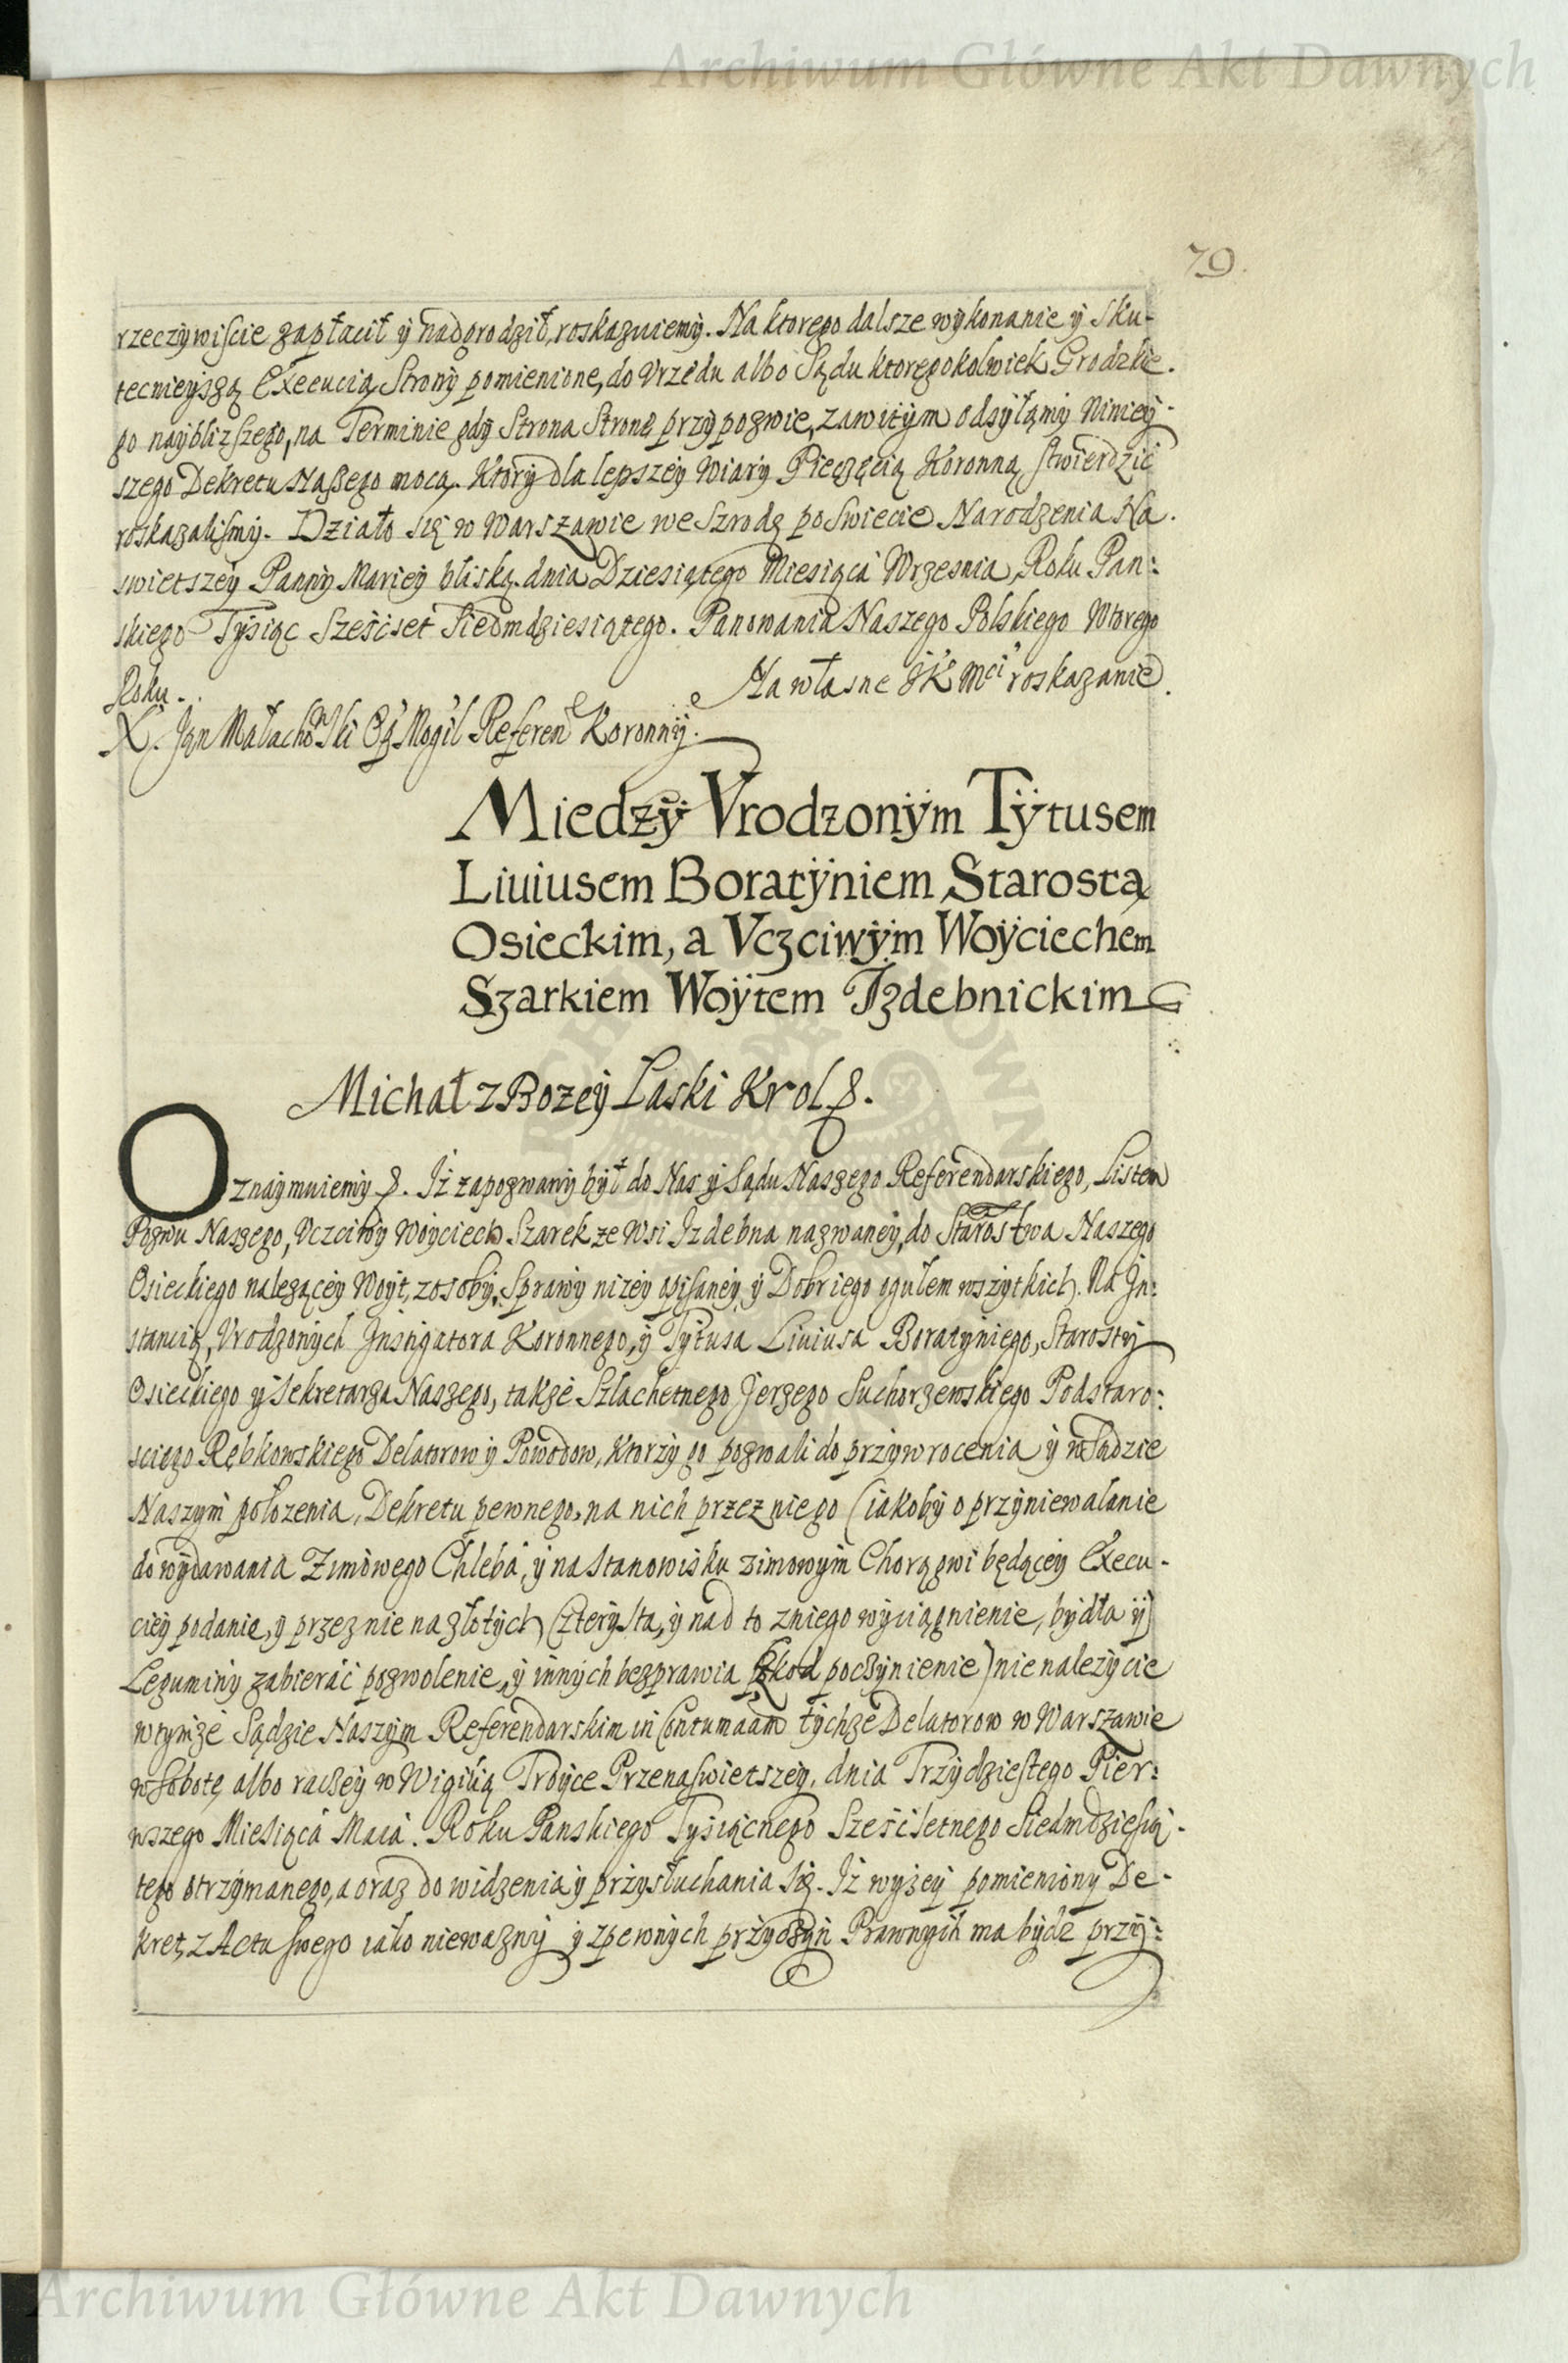 Archiwum Główne Akt Dawnych
79.
rzeczywiscie zapłacił y nadgrodził, roskazuiemy. Na ktorego dalsze wykonanie y sku-
tecznieyszą Execucią, Strony pomienione, do Vrzędu albo Sądu ktoregokolwiek Grodzkie.
go naybliższego, na Terminie gdy Strona Stronę przypozwie, zawitym odsyłamy Niniey-
szego Dekretu Naszego mocą. Ktory dla lepszey wiary Pieczęcią Koronną stwierdzić
roskazalismy. Działo się w Warszawie we Szrodę po Swiecie Narodzenia Na.
swietszey Panny Mariey bliską. dnia Dziesiątego Miesiąca Wrzesnia, Roku Pan:
skiego Tysiąc Sześćset Siedmdziesiątego. Panowania Naszego Polskiego Wtorego
Roku.
Na własne JKMci roskazanie.
X. Jan Małachowski Og Mogil Referen Koronny.
Miedzy Vrodzonym Tytusem
Liuiusem Boratyniem Starostą
Osieckim, a Vczciwym Woyciechem
Szarkiem Woytem Izdebnickim
Michał z Bozey Laski Krol &.
Oznaymuiemy &. Iż zapozwany był do Nas y Sądu Naszego Referendarskiego, Listem
Pozwu Naszego, Vczciwy Woyciech Szarek ze Wsi Izdebna nazwaney, do Starostwa Naszego
Osieckiego nalezącey Woyt, z osoby, Sprawy nizey opisaney y Dobr iego ogułem wszytkich. Na In:
stancią, Vrodzonych Instigatora Koronnego, y Tytusa Liuiusa Boratyniego, Starosty
Osieckiego y Sekretarza Naszego, także Szlachetnego Jerzego Suchorzewskiego Podstaro:
sciego Rębkowskiego Delatorow y Powodow, ktorzy go pozwali do przywrocenia y w Sądzie
Naszym położenia, Dekretu pewnego, na nich przez niego (iakoby o przyniewalanie
do wydawania Zimowego Chleba, y na Stanowisku zimowym Chorągwi będącey Execu-
ciey podanie, y przez nie na złotych Czterysta, y nad to z niego wyciągnienie, bydła y
Leguminy zabierać pozwolenie, y innych bezprawia szkod poczynienie) nie nalezycie
w tymże Sądzie Naszym Referendarskim in Contumaciam tychże Delatorow w Warszawie
w Sobotę, albo raczey w Wigilią Troyce Przenaswietszey, dnia Trzydziestego Pier:
wszego Miesiąca Maia. Roku Panskiego Tysiącnego Sześćsetnego Siedmdziesią-
tego otrzymanego, a oraz do widzenia y przysłuchania się. Iż wyzey pomieniony De-
kret, z Actu swego iako niewazny y z pewnych przyczyn Prawnych ma bydz przy:
Archiwum Główne Akt Dawnych